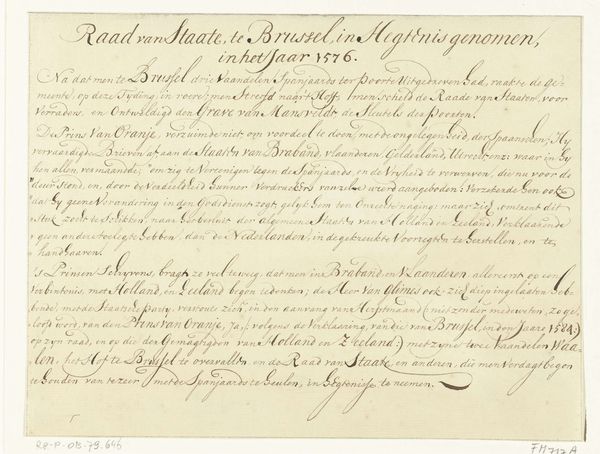 Raad van Staate, te Brussel, in Hegtenis genomen,
in het Jaar 1576.
Na dat men te Brussel drie Vaandelen Spanjaards ter Poorte Uitgedreven had, raakte de ge-
meente, op deze Tyding, in roere; men Streefd naar't Hoff, men scheld de Raade van Staaten, voor
Verraders, en Ontweldigd den Grave van Mansveldt, de Sleutels der Poorten.
De Prins van Oranje, verzuimde niet om voordeel te doen, met de ongelegenheid, der Spaanschen; Hy
vervaardigde Brieven af aan de Staaten van Braband, Vlaanderen, Gelderland, Utrecht enz: waar in hy
hen allen, vermaande, om zig te Vereenigen tegen de Spanjaards, en de Vryheid te verwerven, die nu voor de
deur stond, en, door de Verdeeldheid hunner Verdrukkers van zelve wierd aangeboden: Verzekerde hen ook
dat hy geene Verandering in den Godsdienst zogt, gelyk hem ten Onrechte naging; maar zich, omtrent dit
Stuk, zogt te Schikken, naar het besluit der algemeene Staaten van Holland en Zeeland, Verklaarende
geen ander toelegt hebben, dan de Nederlanden, in de gekreukte Voorregten te herstellen, en te
handhaaven.
's Prinsen Schryvens, bragt zo veel te weeg, dat men in Braband en Vlaanderen allereerst op een
verbintenis, met Holland, en Zeeland begon te denken; de Heer van Glimes ook, zich diep ingelaaten heb-
bende, met de Staatsche party, verkoote zich, in den aanvang van Herfstmaand (niet zonder medeweten, zo ge-
looft word, van den Prins van Oranje, ja, volgens de Verklaaring, van die van Brussel, in den Jaare 1584:)
op zyn raad, en op die der Gemagtigden van Holland en Zeeland:) met zyne twee Vaandelen Waa-
len, het Hof te Brussel te overvallen en de Raad van Staate, en anderen, die men Verdagt begon
te houden van te zeer met de Spanjaards te heulen, in hegtenisse te neemen.
RP-P-OB-79.646
FM 717 A